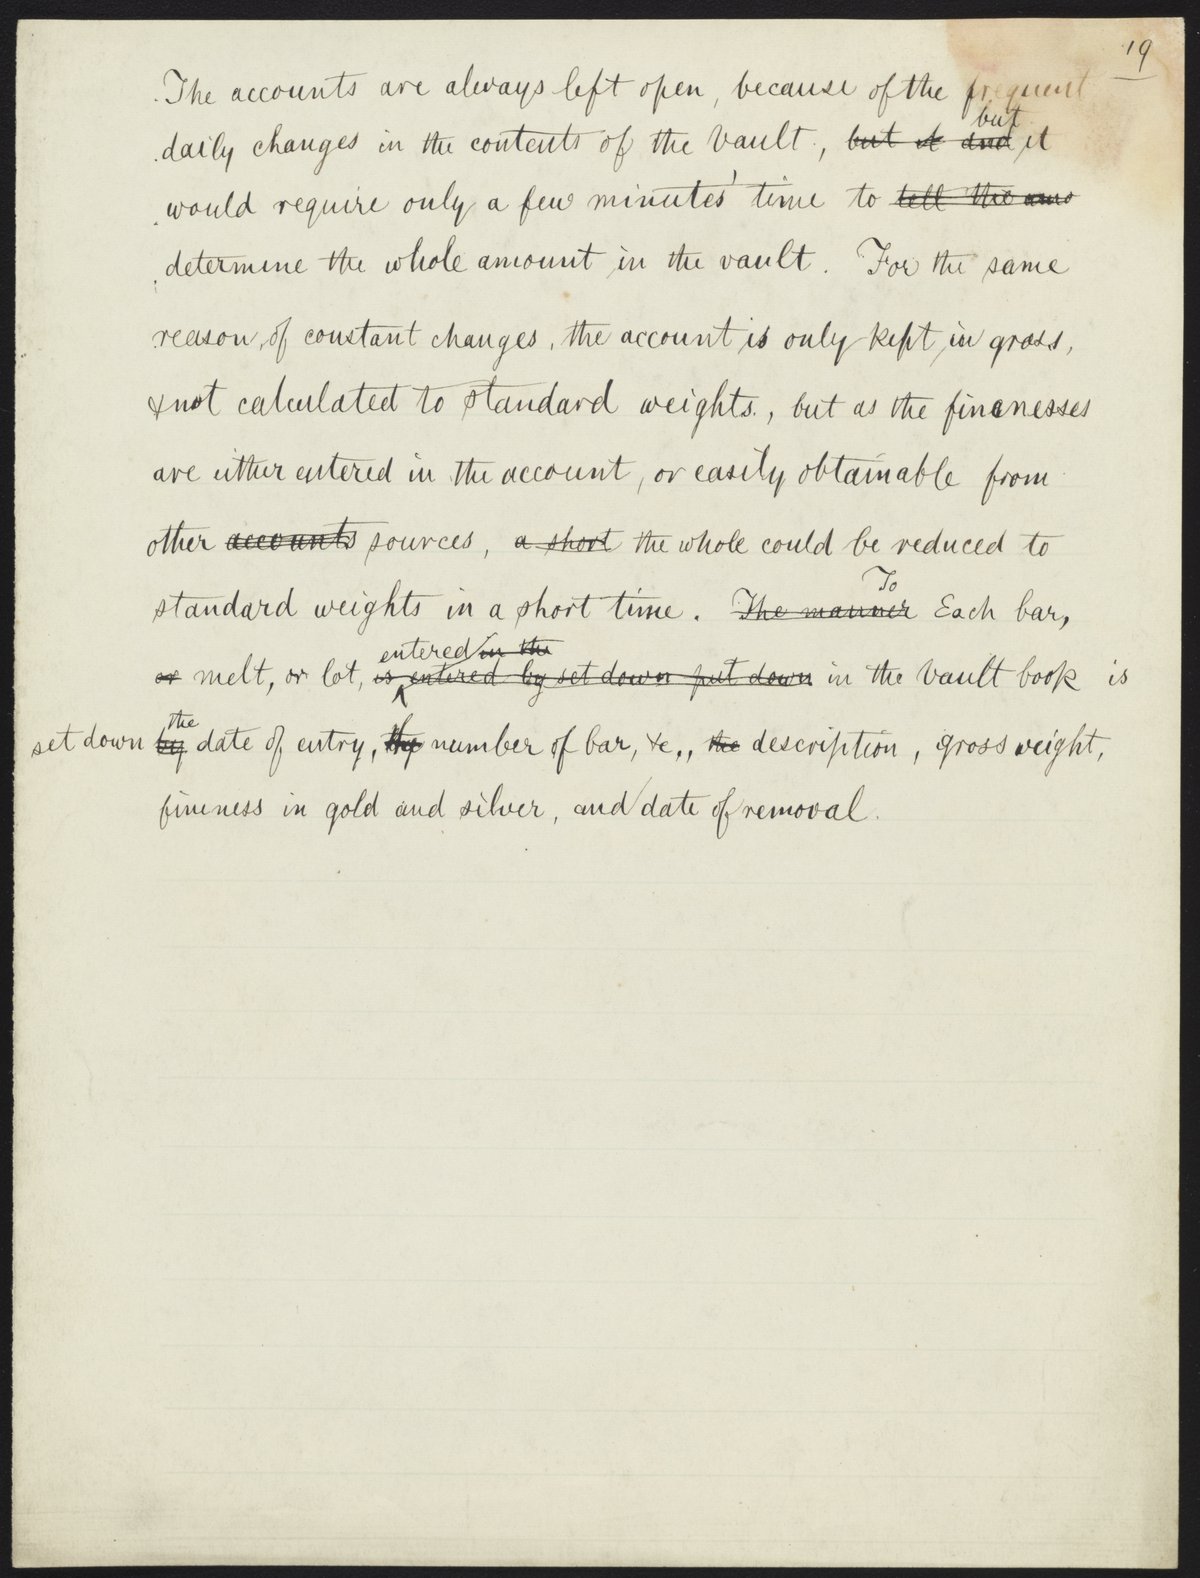 19
The accounts are always left open, because of the frequent
but
daily changes in the contents of the Vault, but it and it
would require only a few minutes' time to tell the amo
determine the whole amount in the vault. For the same
reason, of constant changes, the account is only kept in gross,
& not calculated to standard weights, but as the finenesses
are either entered in the account, or easily obtainable from
other accounts sources, a short the whole could be reduced to
To
standard weights in a short time. The manner Each bar,
entered in the
or melt, or lot, is entered by set down put down in the Vault book is
the
set down by date of entry, the number of bar, &c., the description, gross weight,
fineness in gold and silver, and date of removal.